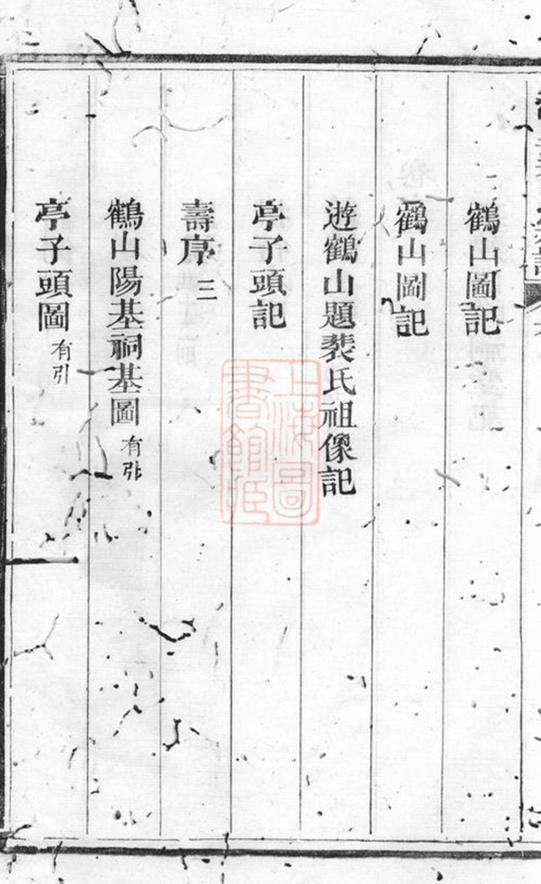 鶴山圖記
鶴山圖記
遊鶴山題裴氏祖像記
亭子頭記
壽序 三
鶴山陽基祠基圖 有引
亭子頭圖 有引
上海圖書館藏